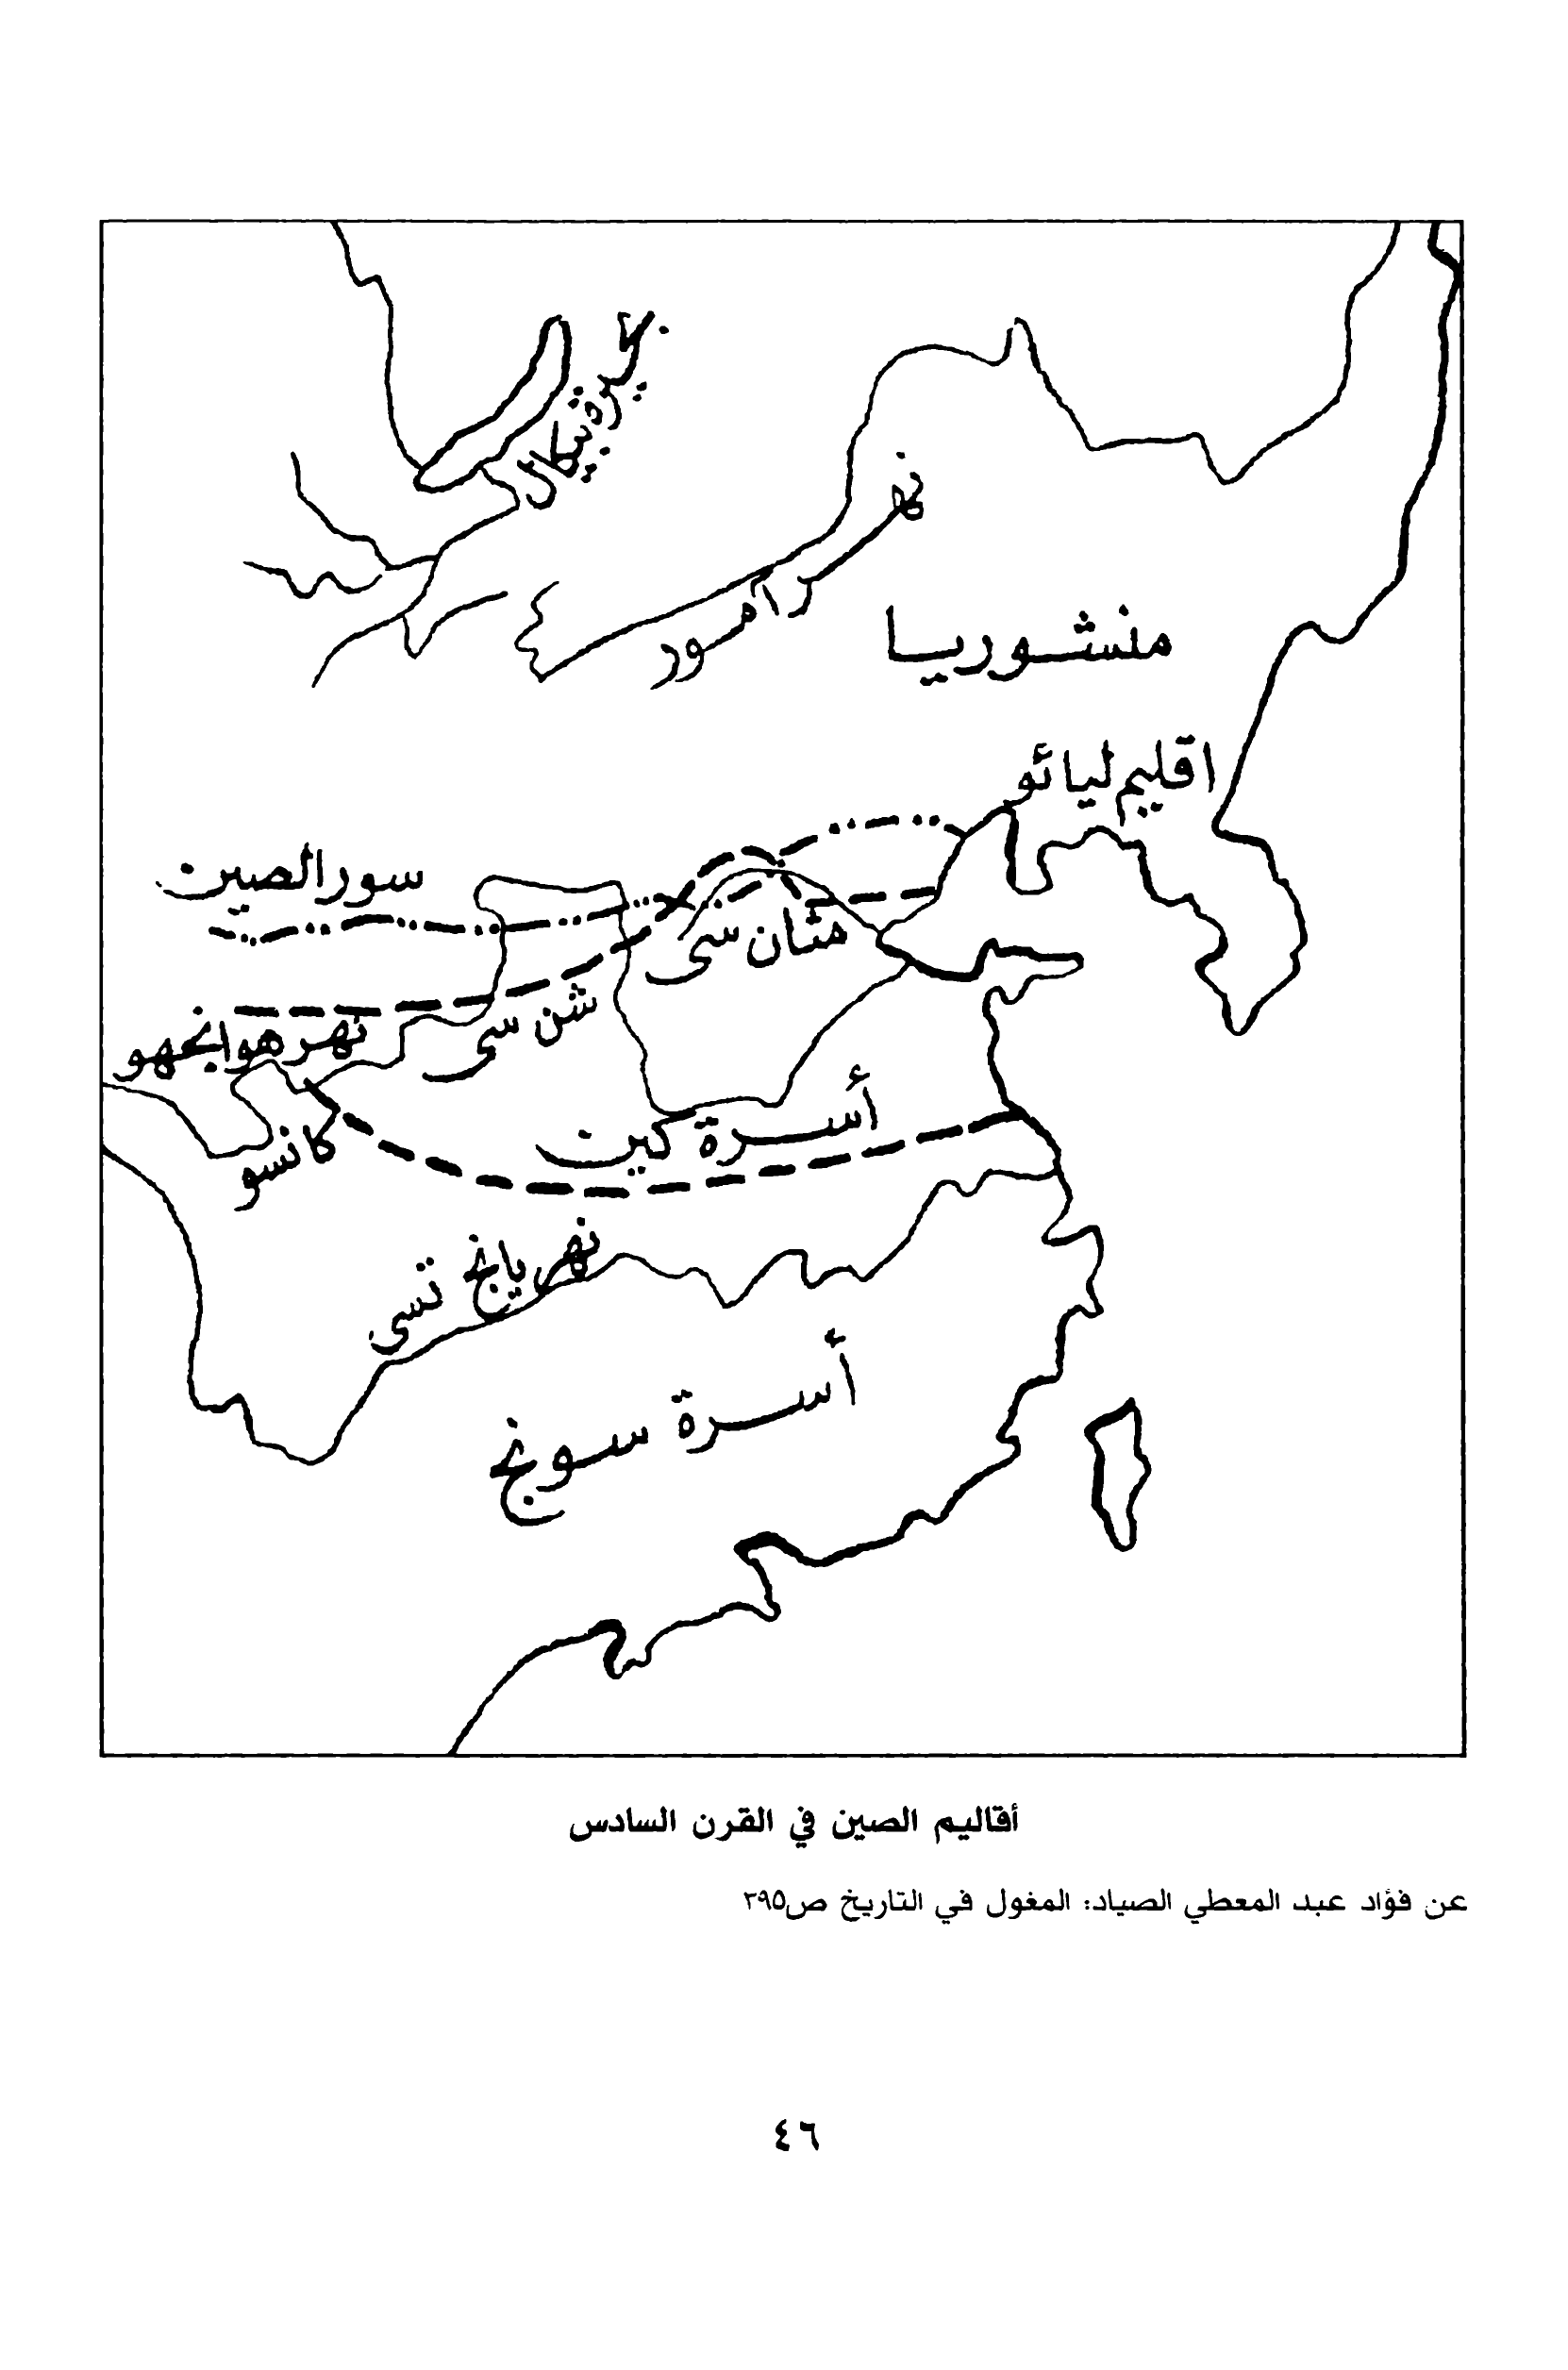 بحيرة بيكال
نهر امور
منشوريا
اقليم ليائو
سور الصين
شان سى
شن سى
نهر هوانجهو
كانسو
أسرة كين
نهر يانج تسى
أسرة سونج
أقاليم الصين في القرن السادس
عن فؤاد عبد المعطي الصياد: المغول في التاريخ ص٣٩٥
٤٦